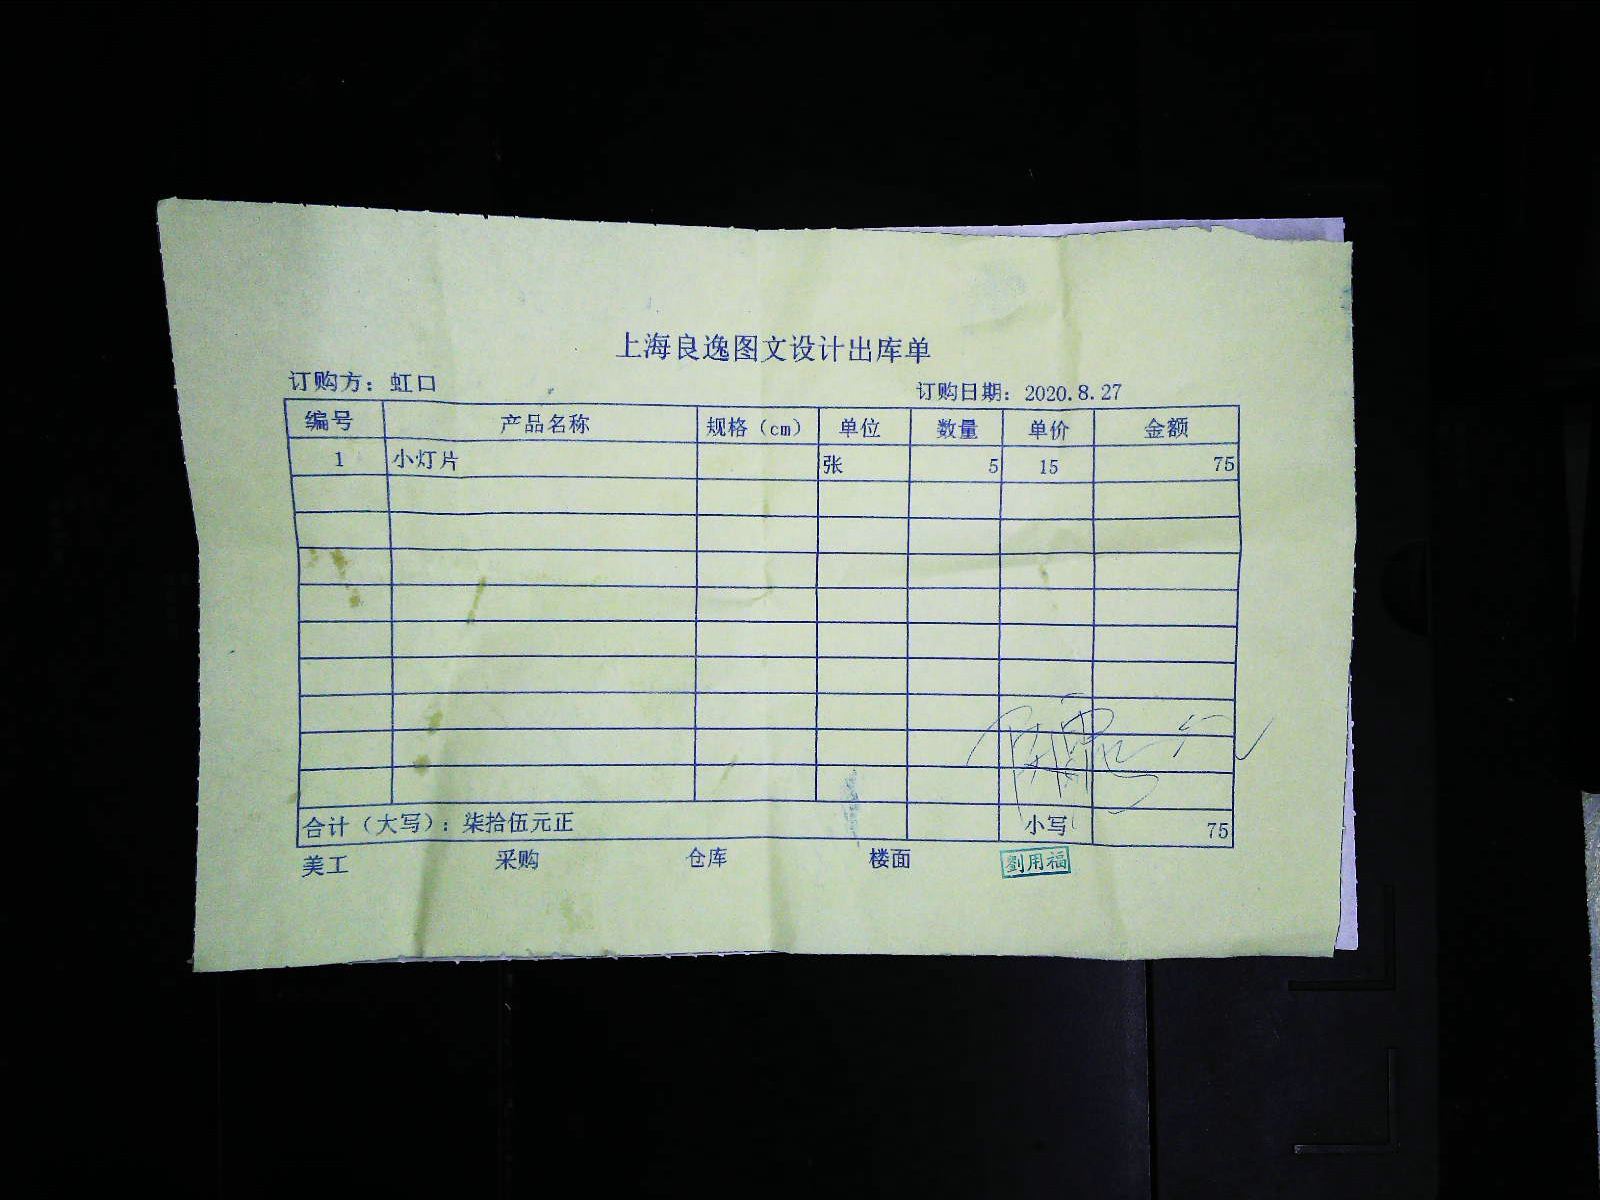 上海良逸图文设计出库单
订购方：虹口 订购日期：2020.8.27
编号 产品名称 规格（cm） 单位 数量 单价 金额
1 小灯片 张 5 15 75
合计（大写）：柒拾伍元正 小写 75
美工 采购 仓库 楼面 劉用福